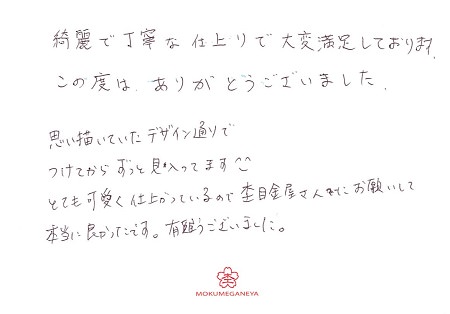 綺麗で丁寧な仕上りで大変満足しております。
この度は、ありがとうございました。
思い描いていたデザイン通りで
つけてからずっと見入ってます^^
とても可愛く仕上がっているので杢目金屋さんにお願いして
本当に良かったです。有難うございました。
MOKUMEGANEYA